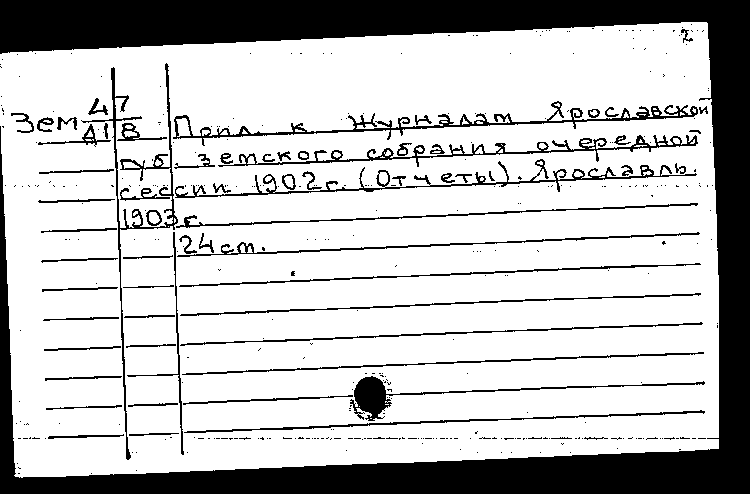 2
Зем 47
418 Прил. к журналам Ярославской
губ. земского собрания очередной
сессии 1902 г. (Отчеты). Ярославль.
1903 г.
24 cm.